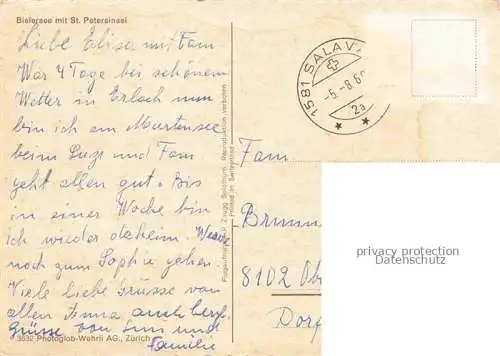 Bielersee mit St. Petersinsel
Liebe Elisa mit Fam.
War 4 Tage bei schönem
Wetter in Erlach nun
bin ich am Murtensee
beim und Fam
geht allen gut. Bis
in einer Woche bin
ich wieder daheim.
noch zum Sophie gehen.
Viele liebe Grüsse von
allen Emma auch herzl.
Grüsse von und
Familie
3632 Photoglob-Wehrli AG., Zürich
Reproduktion verboten
Printed in Switzerland
1581 SALAV
-5.-8.6
2a
Fam.
8102 Ob
Dorf
privacy protection
Datenschutz